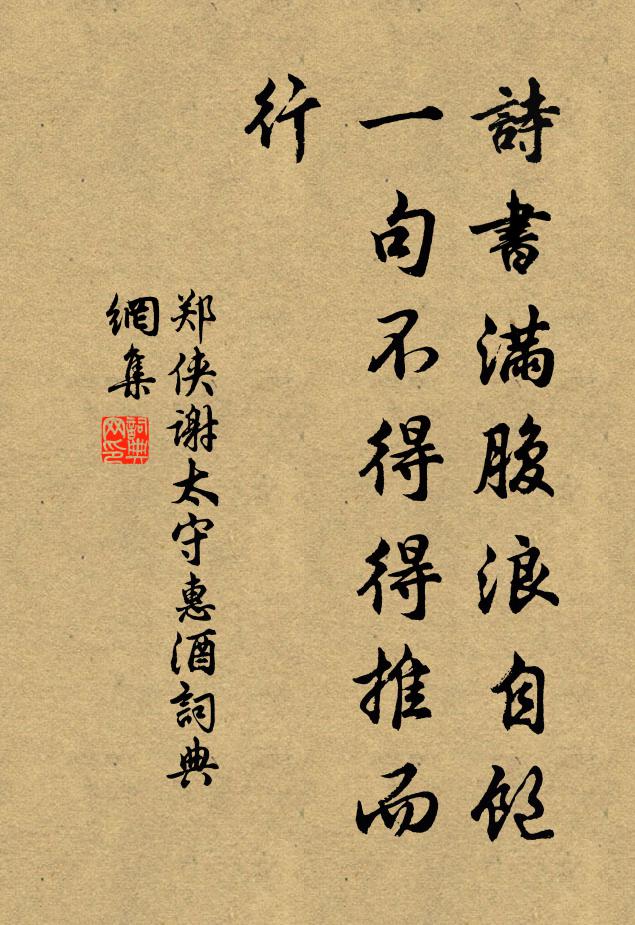 詩書滿腹浪自飽
一句不得得推而
行
郑侠谢太守惠酒詞典
網集
詞典
网印